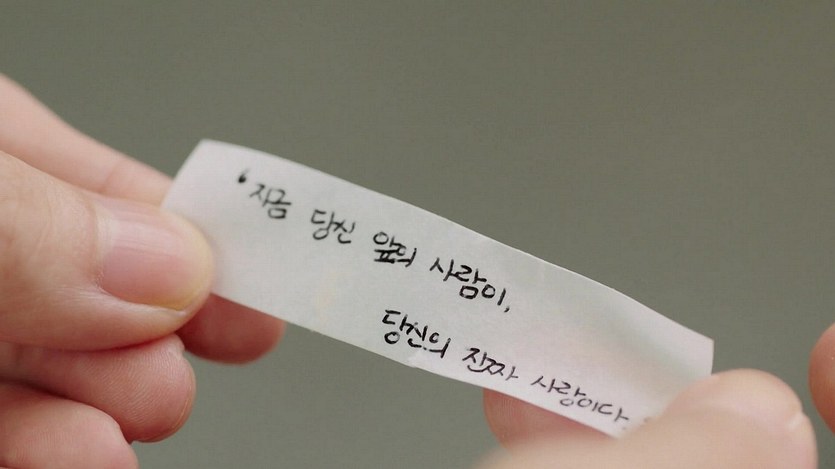 ‘지금 당신 앞의 사람이,
당신의 진짜 사랑이다.